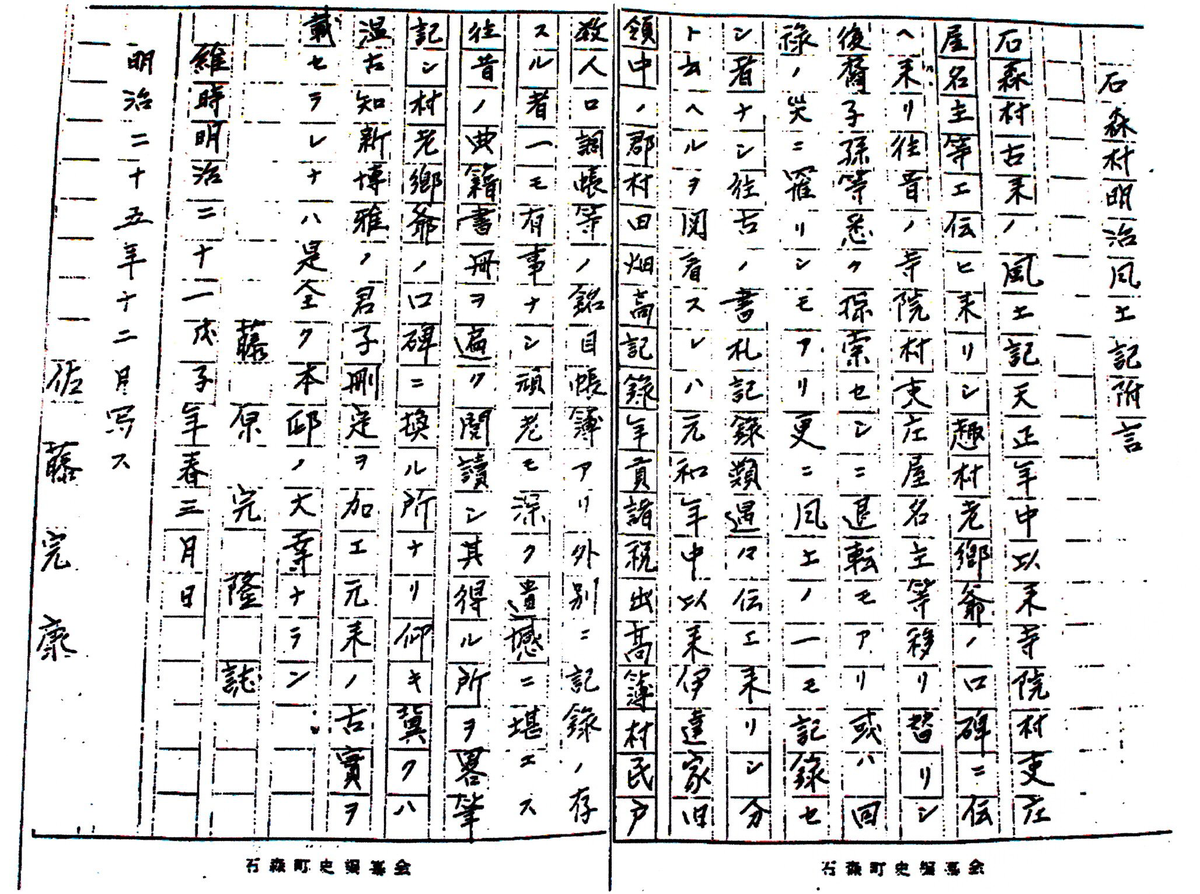 石森村明治風土記附言
石森村古来ノ風土記天正年中以来寺院村吏庄
屋名主等エ伝ヒ来リシ趣村老郷爺ノ口碑ニ伝
ヘ来リ往昔ノ寺院村吏庄屋名主等移リ替リシ
後裔子孫等悉ク探索セシニ退転モアリ或ハ回
禄ノ災ニ罹リシモアリ更ニ風土ノ一モ記録セ
シ者ナシ往古ノ書札記録類遇ロ伝エ来リシ分
ト云ヘルヲ閲看スレハ元和年中以来伊達家旧
領中ノ郡村田畑高記録年貢諸税出高簿村民戸
数人口調帳等ノ銘目帳簿アリ外別ニ記録ノ存
スル者一モ有事ナシ頑老モ深ク遺憾ニ堪エス
往昔ノ典籍書冊ヲ遍ク閲讀シ其得ル所ヲ畧筆
記シ村老郷爺ノ口碑ニ換ル所ナリ仰キ冀クハ
温古知新博雅ノ君子刪定ヲ加エ元来ノ古實ヲ
載セラレナハ是全ク本邱ノ大幸ナラン
藤原完隆誌
維時明治二十一戊子年春三月日
明治二十五年十二月写ス
佐藤完康
石森町史編纂会
石森町史編纂会